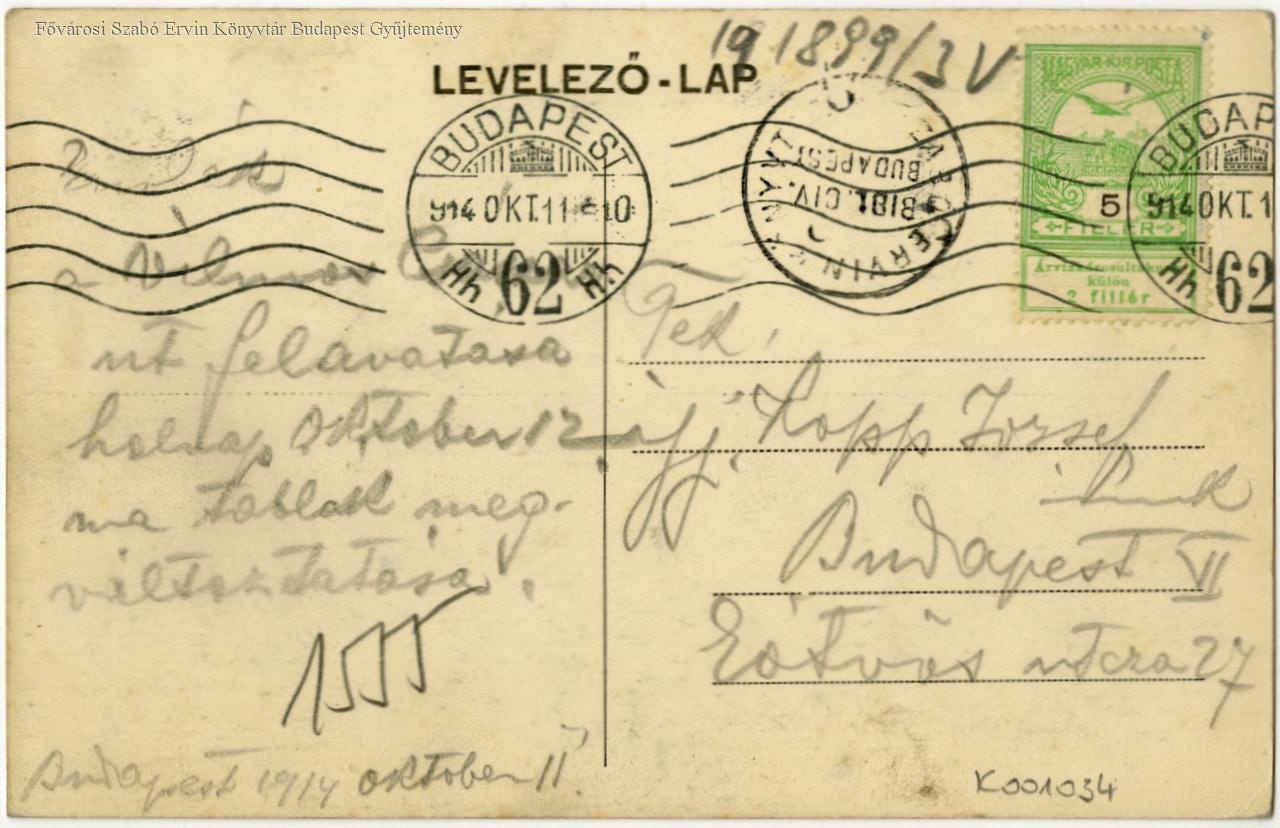 Fővárosi Szabó Ervin Könyvtár Budapest Gyűjtemény
191899/3 V
LEVELEZŐ-LAP
MAGYAR KIR. POSTA
5
FILLÉR
Árvízkárosultaknak
külön
2 fillér
BUDAPEST
914 OKT. 11
62
Hh Hh
BUDAPEST
914 OKT. 1
62
Hh
BIBL. CIV.
BUDAPEST
ERVIN
a Vilmos
út felavatása
holnap október 12
ma táblák meg-
változtatása.
Budapest 1914 október 11
Tek.
ifj. Kopp József
Budapest VI
Eötvös utcza 27
K001034